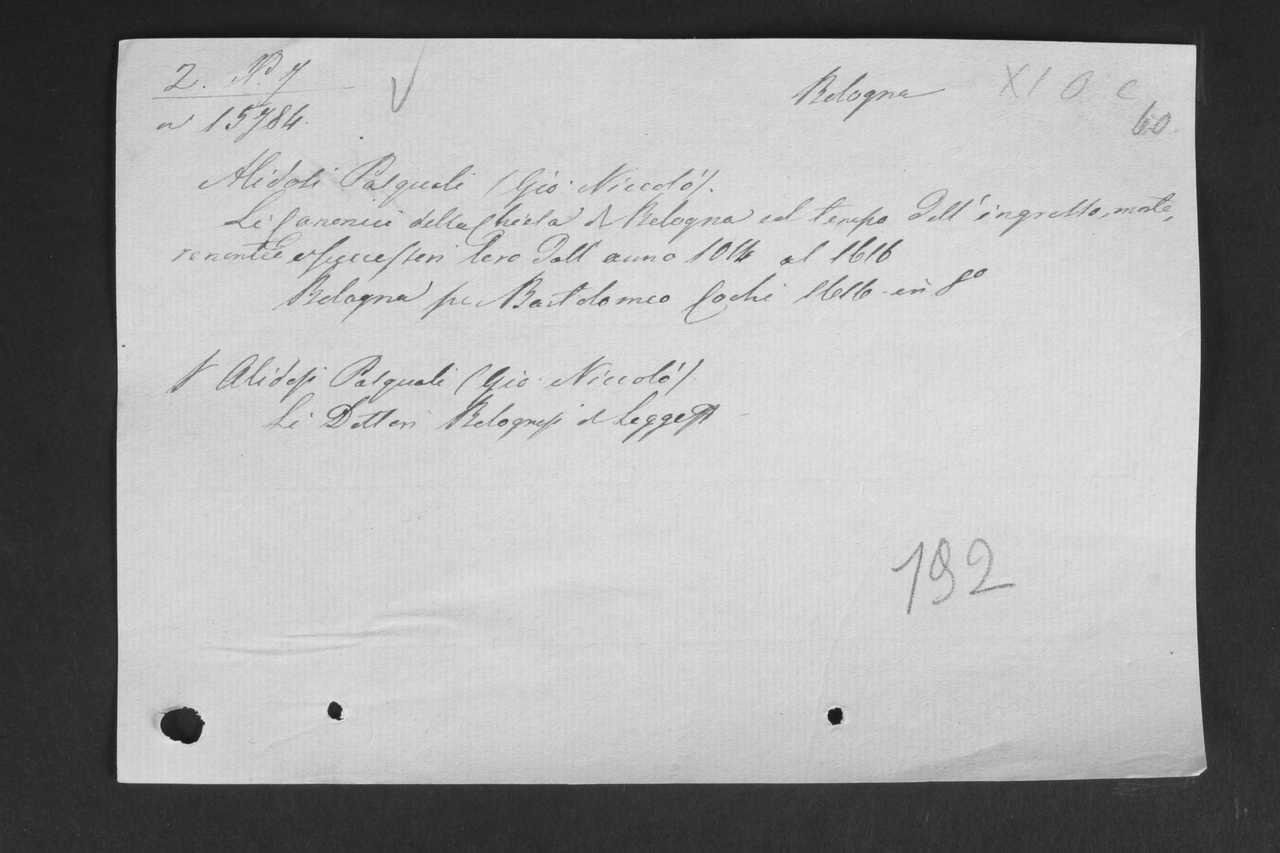 2. N.º 7
n 15784.
Bologna
XI O C
60.
Alidosi Pasquali (Gio. Niccolò).
Li Canonici della Chiesa di Bologna col tempo dell' ingresso, morte,
renontie e successori loro dall' anno 1014 al 1616
Bologna pe Bartolomeo Cochi 1616 in 8º
Alidosi Pasquali (Gio. Niccolò).
Li Dottori Bolognesi di legge
192